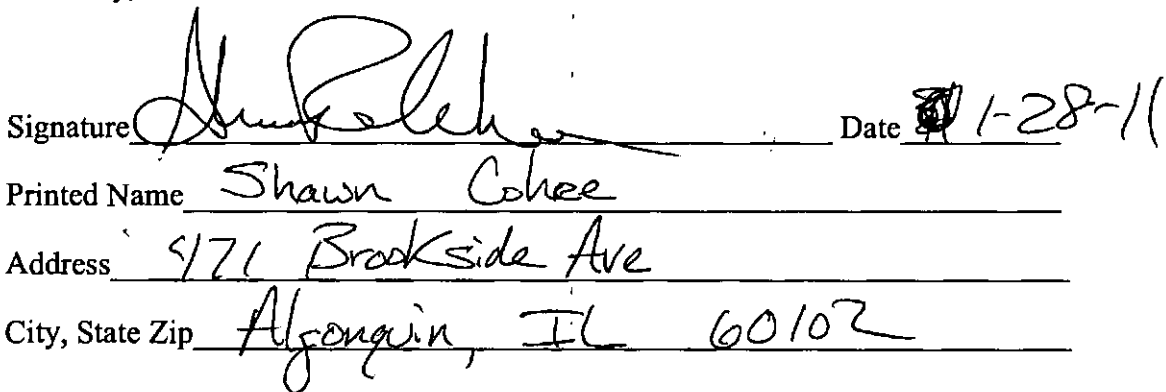 Signature Date 1-28-11
Printed Name Shawn Cohee
Address 971 Brookside Ave
City, State Zip Algonquin, IL 60102